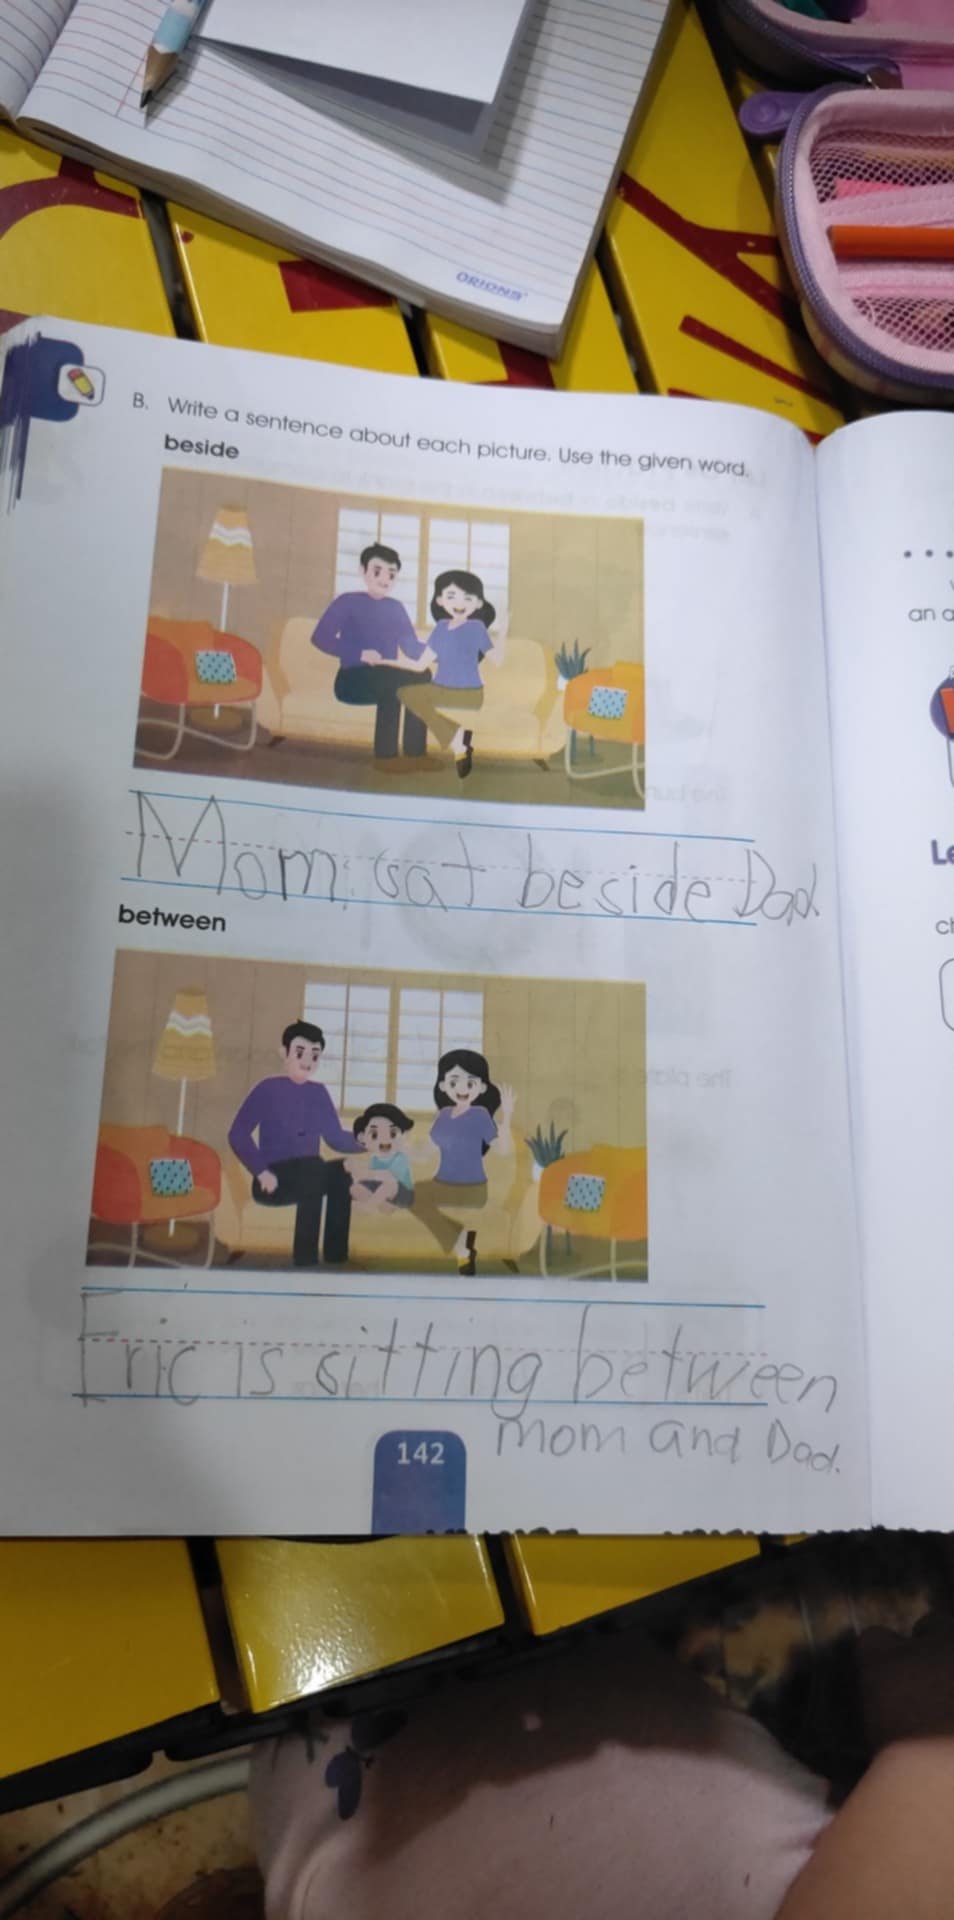 ORIONS
B. Write a sentence about each picture. Use the given word.
beside
Mom sat beside Dad
between
Eric is sitting between
mom and Dad.
142
an
Le